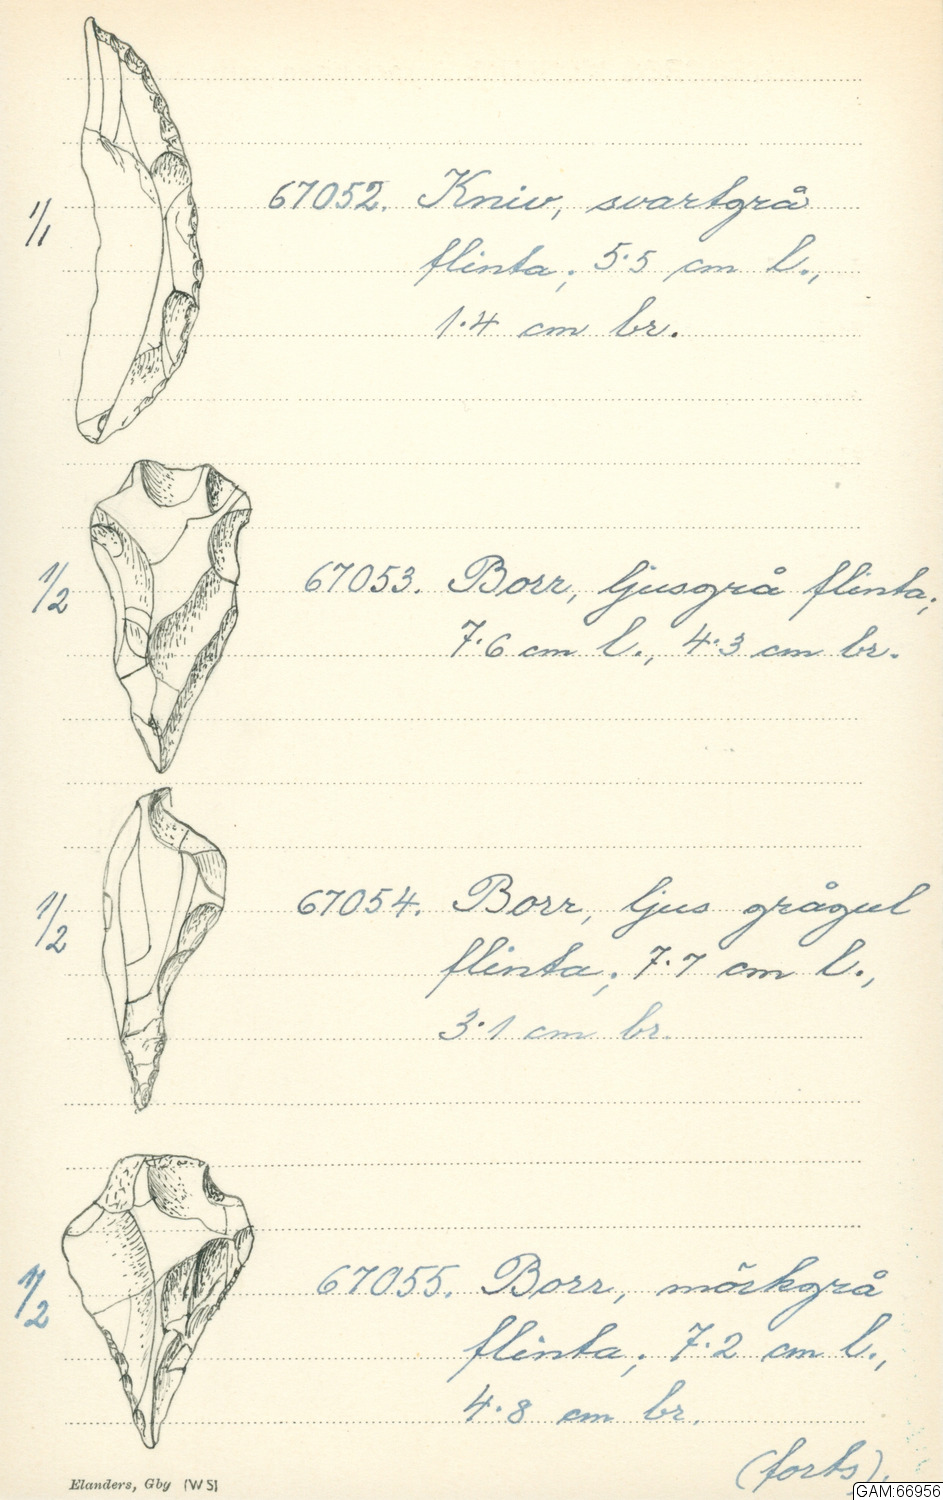 1/1
67052. Kniv, svartgrå
flinta; 5.5 cm l.,
1.4 cm br.
1/2
67053. Borr, ljusgrå flinta;
7.6 cm l., 4.3 cm br.
1/2
67054. Borr, ljus grågul
flinta; 7.7 cm l.,
3.1 cm br.
1/2
67055. Borr, mörkgrå
flinta; 7.2 cm l.,
4.8 cm br.
(forts).
Elanders, Gby (WS)
GAM:66956